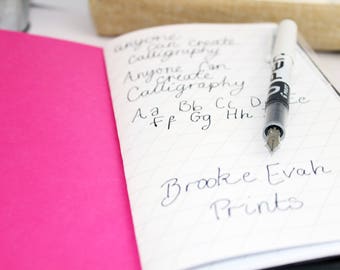 anyone
can create
Calligraphy
Anyone can
create
Calligraphy
Aa Bb Cc Dd Ee
Ff Gg Hh
Brooke Evah
Prints